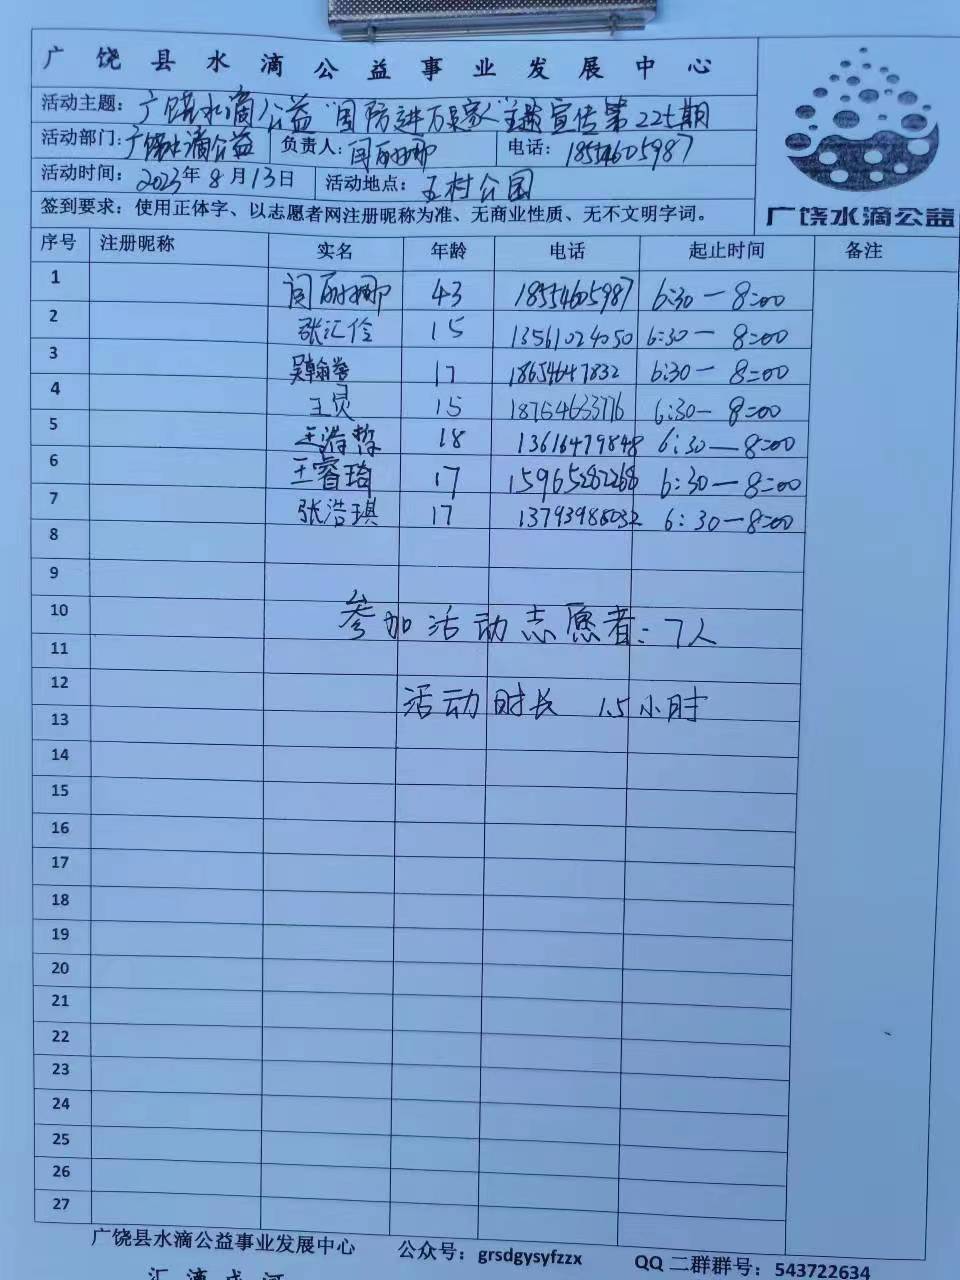 广饶县水滴公益事业发展中心
活动主题：广饶水滴公益“国防进万家”主题宣传第225期
活动部门：广饶水滴公益 负责人：闫丽娜 电话：18554605987
活动时间：2023年8月13日 活动地点：五村公园
签到要求：使用正体字、以志愿者网注册昵称为准、无商业性质、无不文明字词。
广饶水滴公益
序号 注册昵称 实名 年龄 电话 起止时间 备注
1 闫丽娜 43 18554605987 6:30—8:00
2 张汇伶 15 13561024050 6:30—8:00
3 吴翰 17 18654647832 6:30—8:00
4 王 15 18764633776 6:30—8:00
5 王浩哲 18 13616479848 6:30—8:00
6 王睿琦 17 15965282268 6:30—8:00
7 张浩琪 17 13793988032 6:30—8:00
8
9
10
参加活动志愿者：7人
11
12
活动时长 1.5小时
13
14
15
16
17
18
19
20
21
22
23
24
25
26
27
广饶县水滴公益事业发展中心 公众号：grsdgysyfzzx QQ二群群号：543722634
汇滴成河